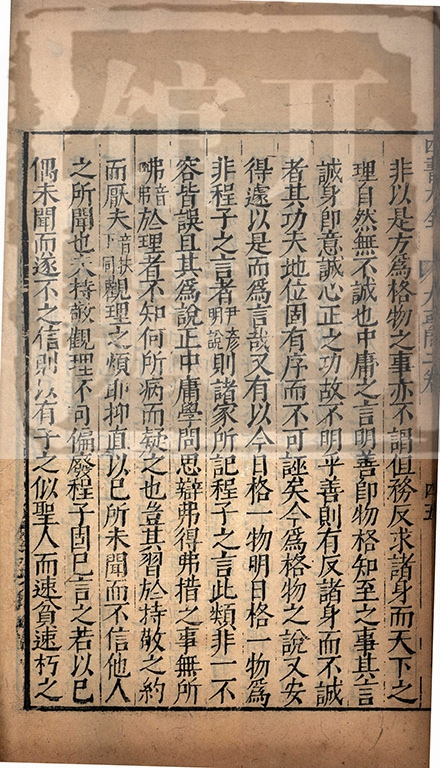 非以是方爲格物之事亦不謂但務反求諸身而天下之
理自然無不誠也中庸之言明善即物格知至之事其言
誠身即意誠心正之功故不明乎善則有反諸身而不誠
者其功夫地位固有序而不可誣矣今爲格物之說又安
得遽以是而爲言哉又有以今日格一物明日格一物爲
非程子之言者尹彥明說則諸家所記程子之言此類非一不
容皆誤且其爲說正中庸學問思辯弗得弗措之事無所
咈音弗於理者不知何所病而疑之也豈其習於持敬之約
而厭夫音扶下同觀理之煩耶抑直以已所未聞而不信他人
之所聞也夫持敬觀理不可偏廢程子固已言之若以已
偶未聞而遂不之信則以有子之似聖人而速貧速朽之